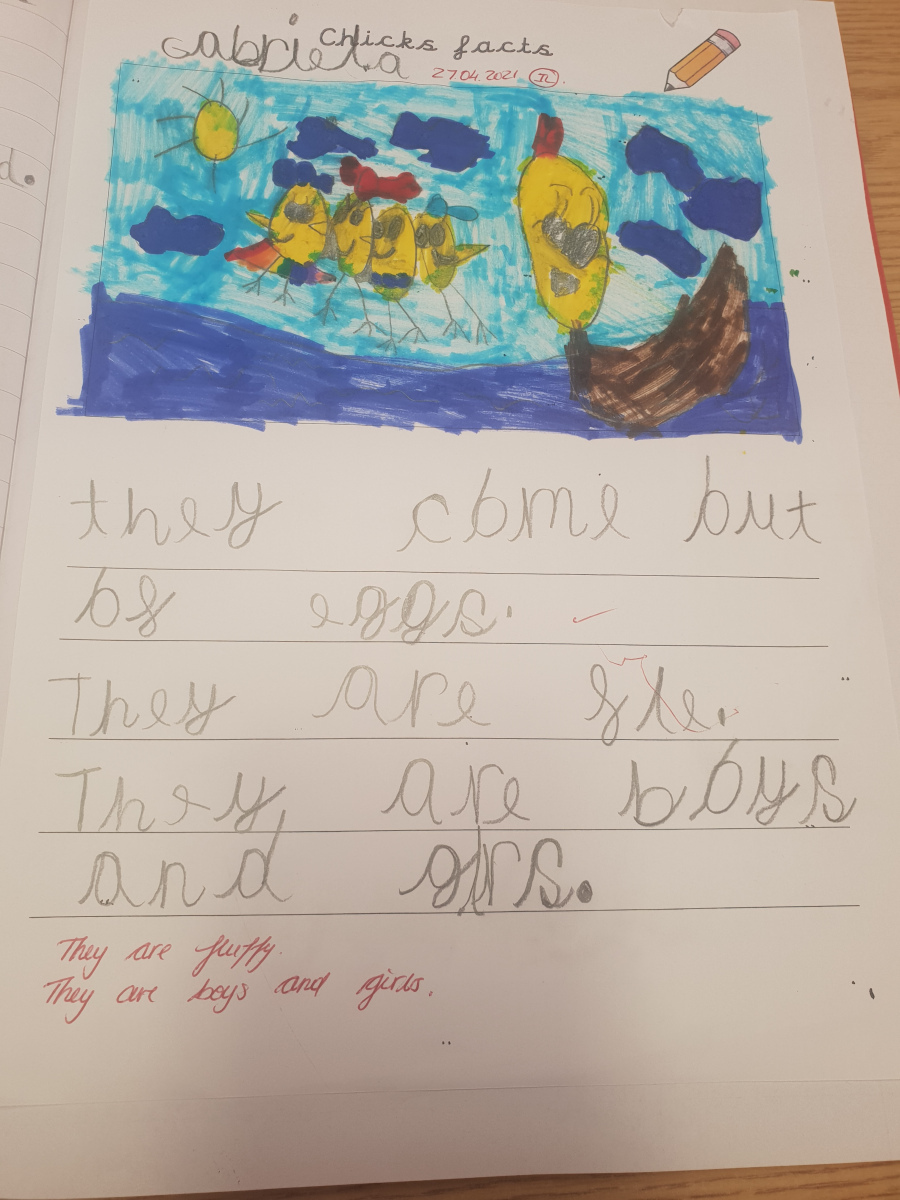 Chicks facts
Gabriela
27.04.2021
they come but
of eggs.
They are fle.
They are boys
and girs.
They are fluffy.
They are boys and girls.
d.